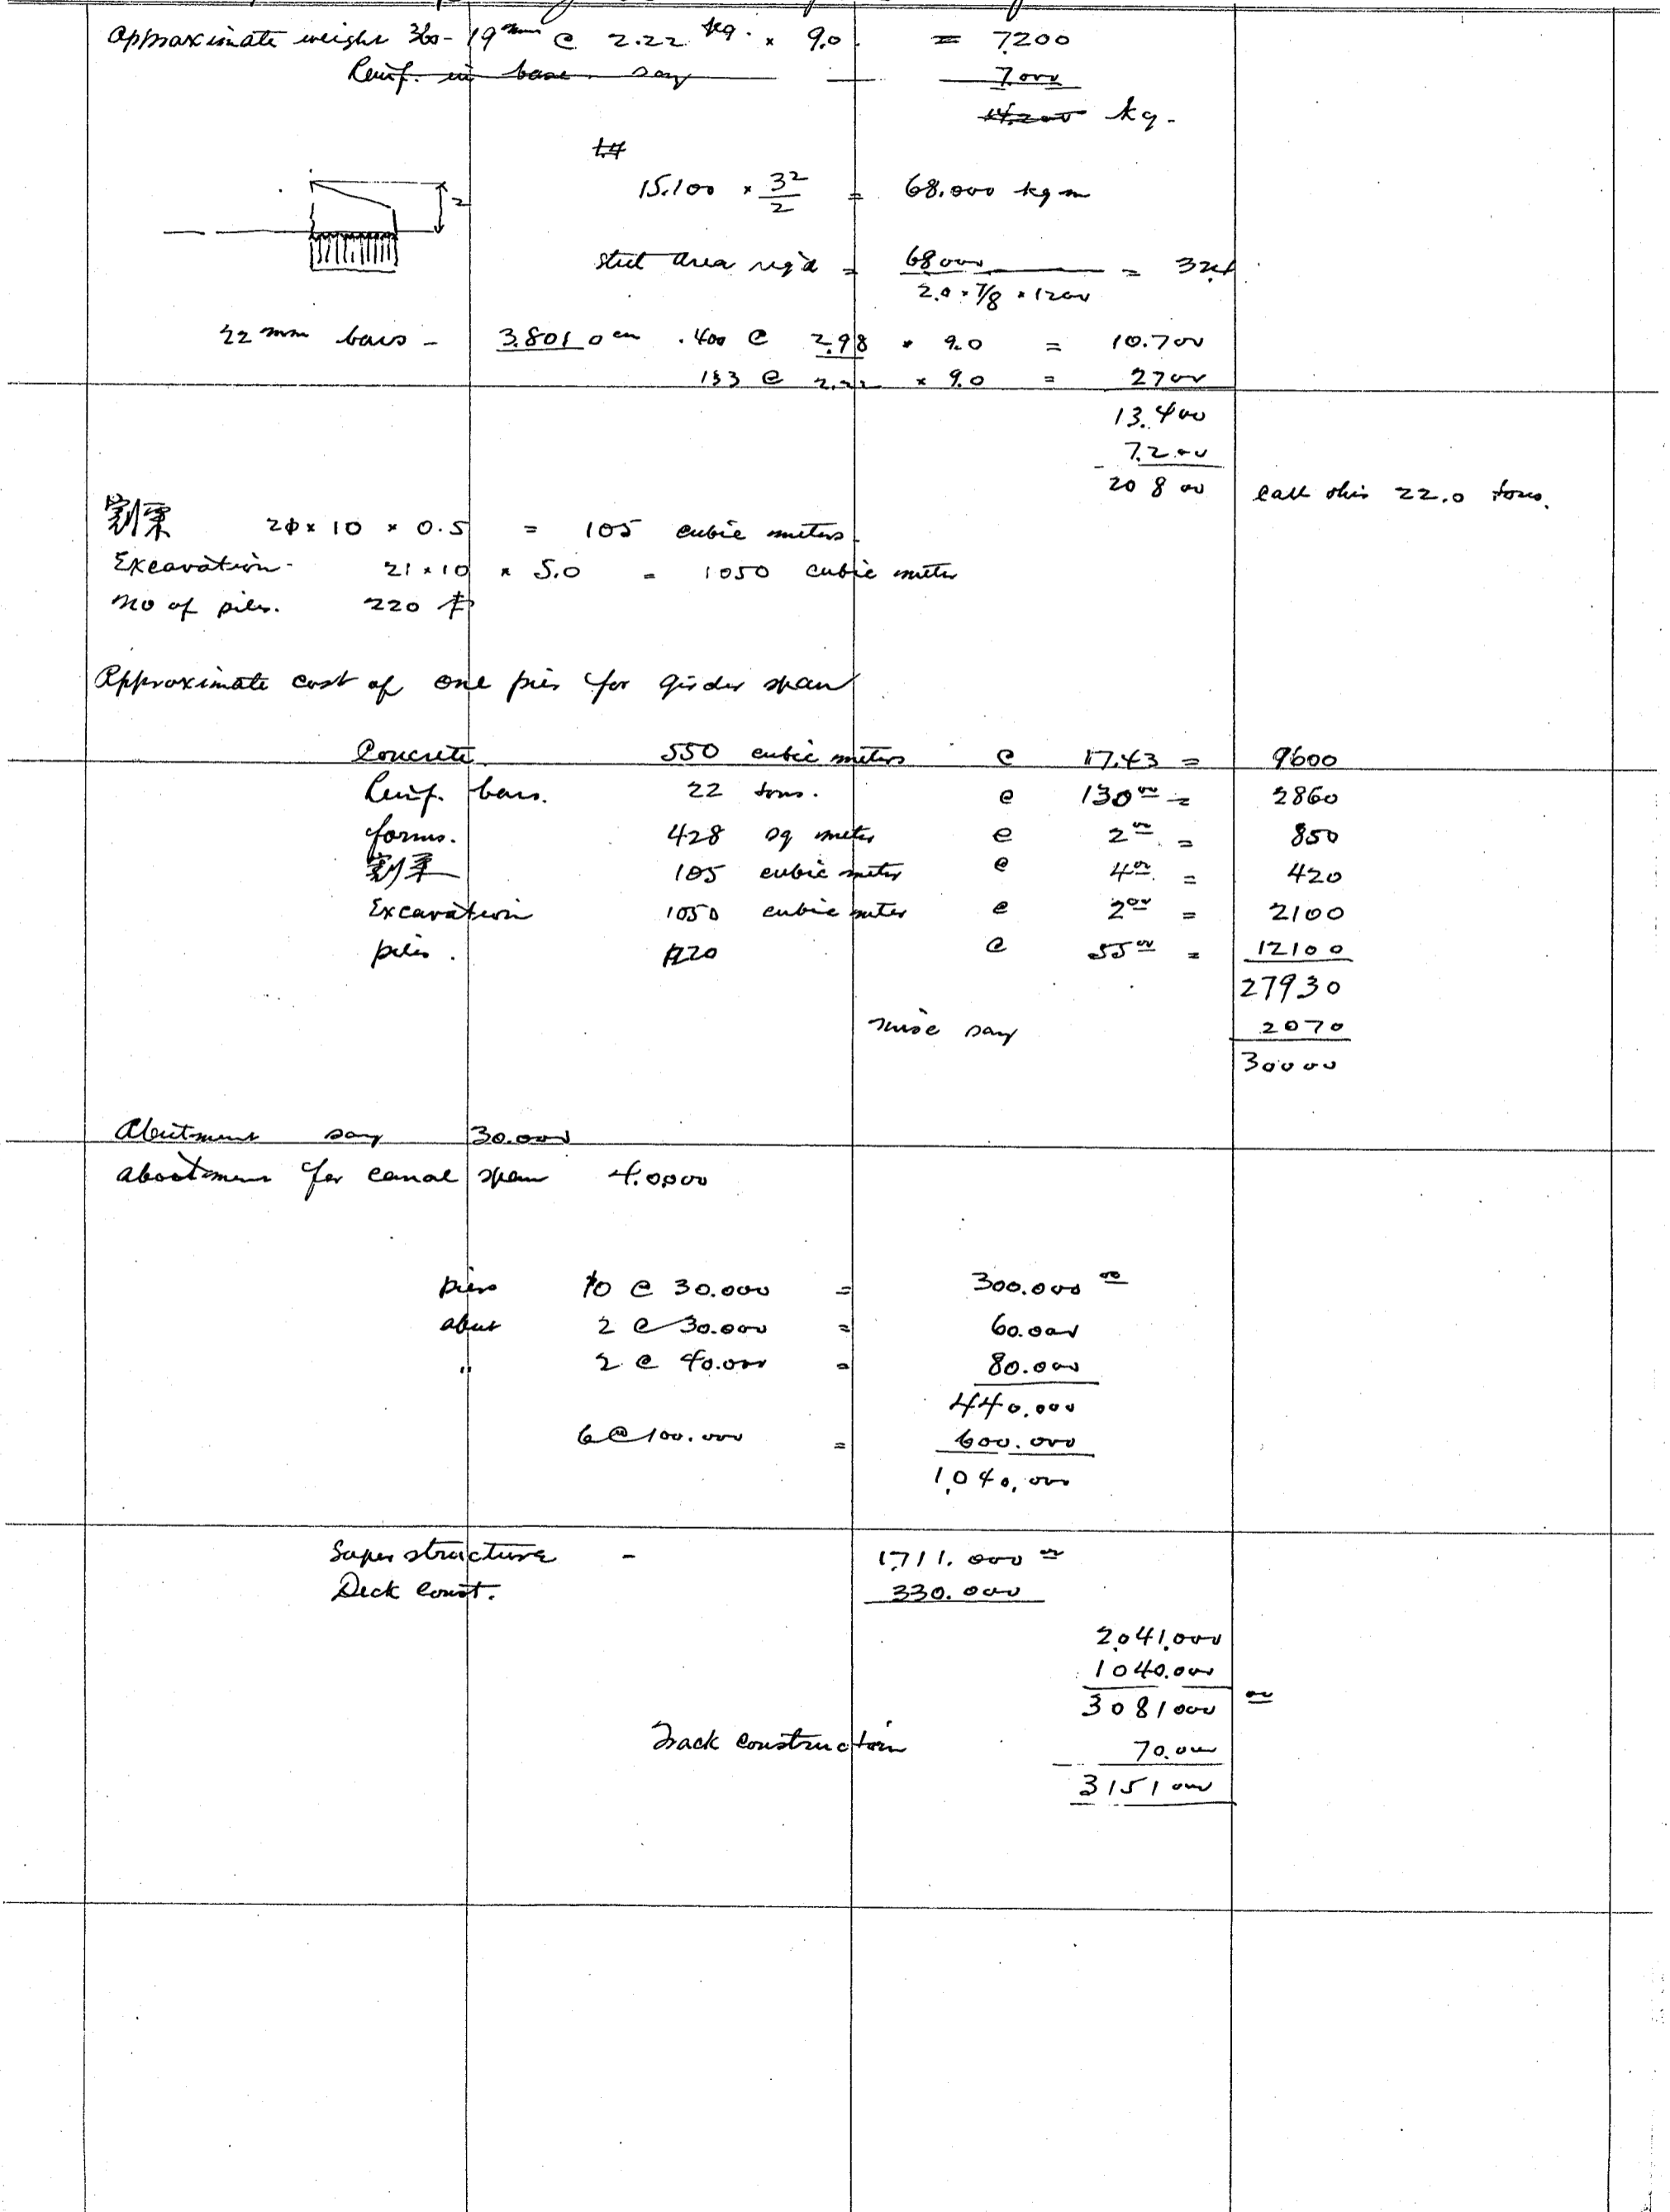 Approximate weight 360 - 19 mm @ 2.22 kg. × 9.0 = 7200
Reinf. in base say 7.000
14.200 kg.
1.4
15.100 × 3²/2 = 68.000 kg m
2
steel area req'd = 68000 / 2.0 × 7/8 × 1200 = 32.4
22 mm bars - 3.801 □ cm .400 @ 2.98 × 9.0 = 10.700
133 @ 2.22 × 9.0 = 2700
13.400
7.200
20800 call this 22.0 tons.
割栗 21 × 10 × 0.5 = 105 cubic meters
Excavation - 21 × 10 × 5.0 = 1050 cubic meter
No of piles. 220 本
Approximate cost of one pier for girder span
Concrete 550 cubic meters @ 17.43 = 9600
Reinf. bars. 22 tons. @ 130 00 = 2860
forms. 428 sq meter @ 2 00 = 850
割栗 105 cubic meter @ 4 00 = 420
Excavation 1050 cubic meter @ 2 00 = 2100
piles. 220 @ 55 00 = 12100
27930
misc say 2070
30000
Abutment say 30.000
abutment for canal span 40000
piers 10 @ 30.000 = 300.000 00
abut 2 @ 30.000 = 60.000
" 2 @ 40.000 = 80.000
440.000
6 @ 100.000 = 600.000
1,040,000
Superstructure - 1,711.000 00
Deck const. 330.000
2,041,000
1040.000
3081000 00
Track construction 70.000
3151000